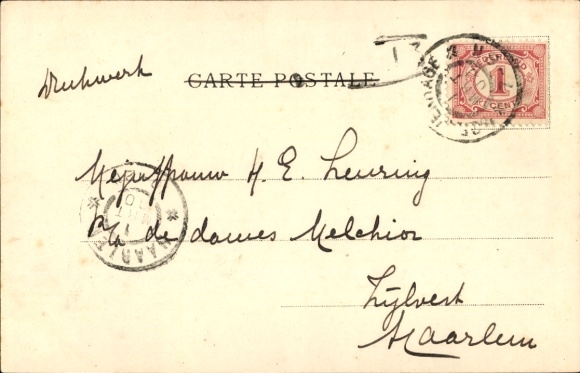 Drukwerk
CARTE POSTALE
NEDERLAND
1
CENT
Mejuffrouw H. E. Leuring
P/a de dames Melchior
Zijlvest
Haarlem
HAARLEM